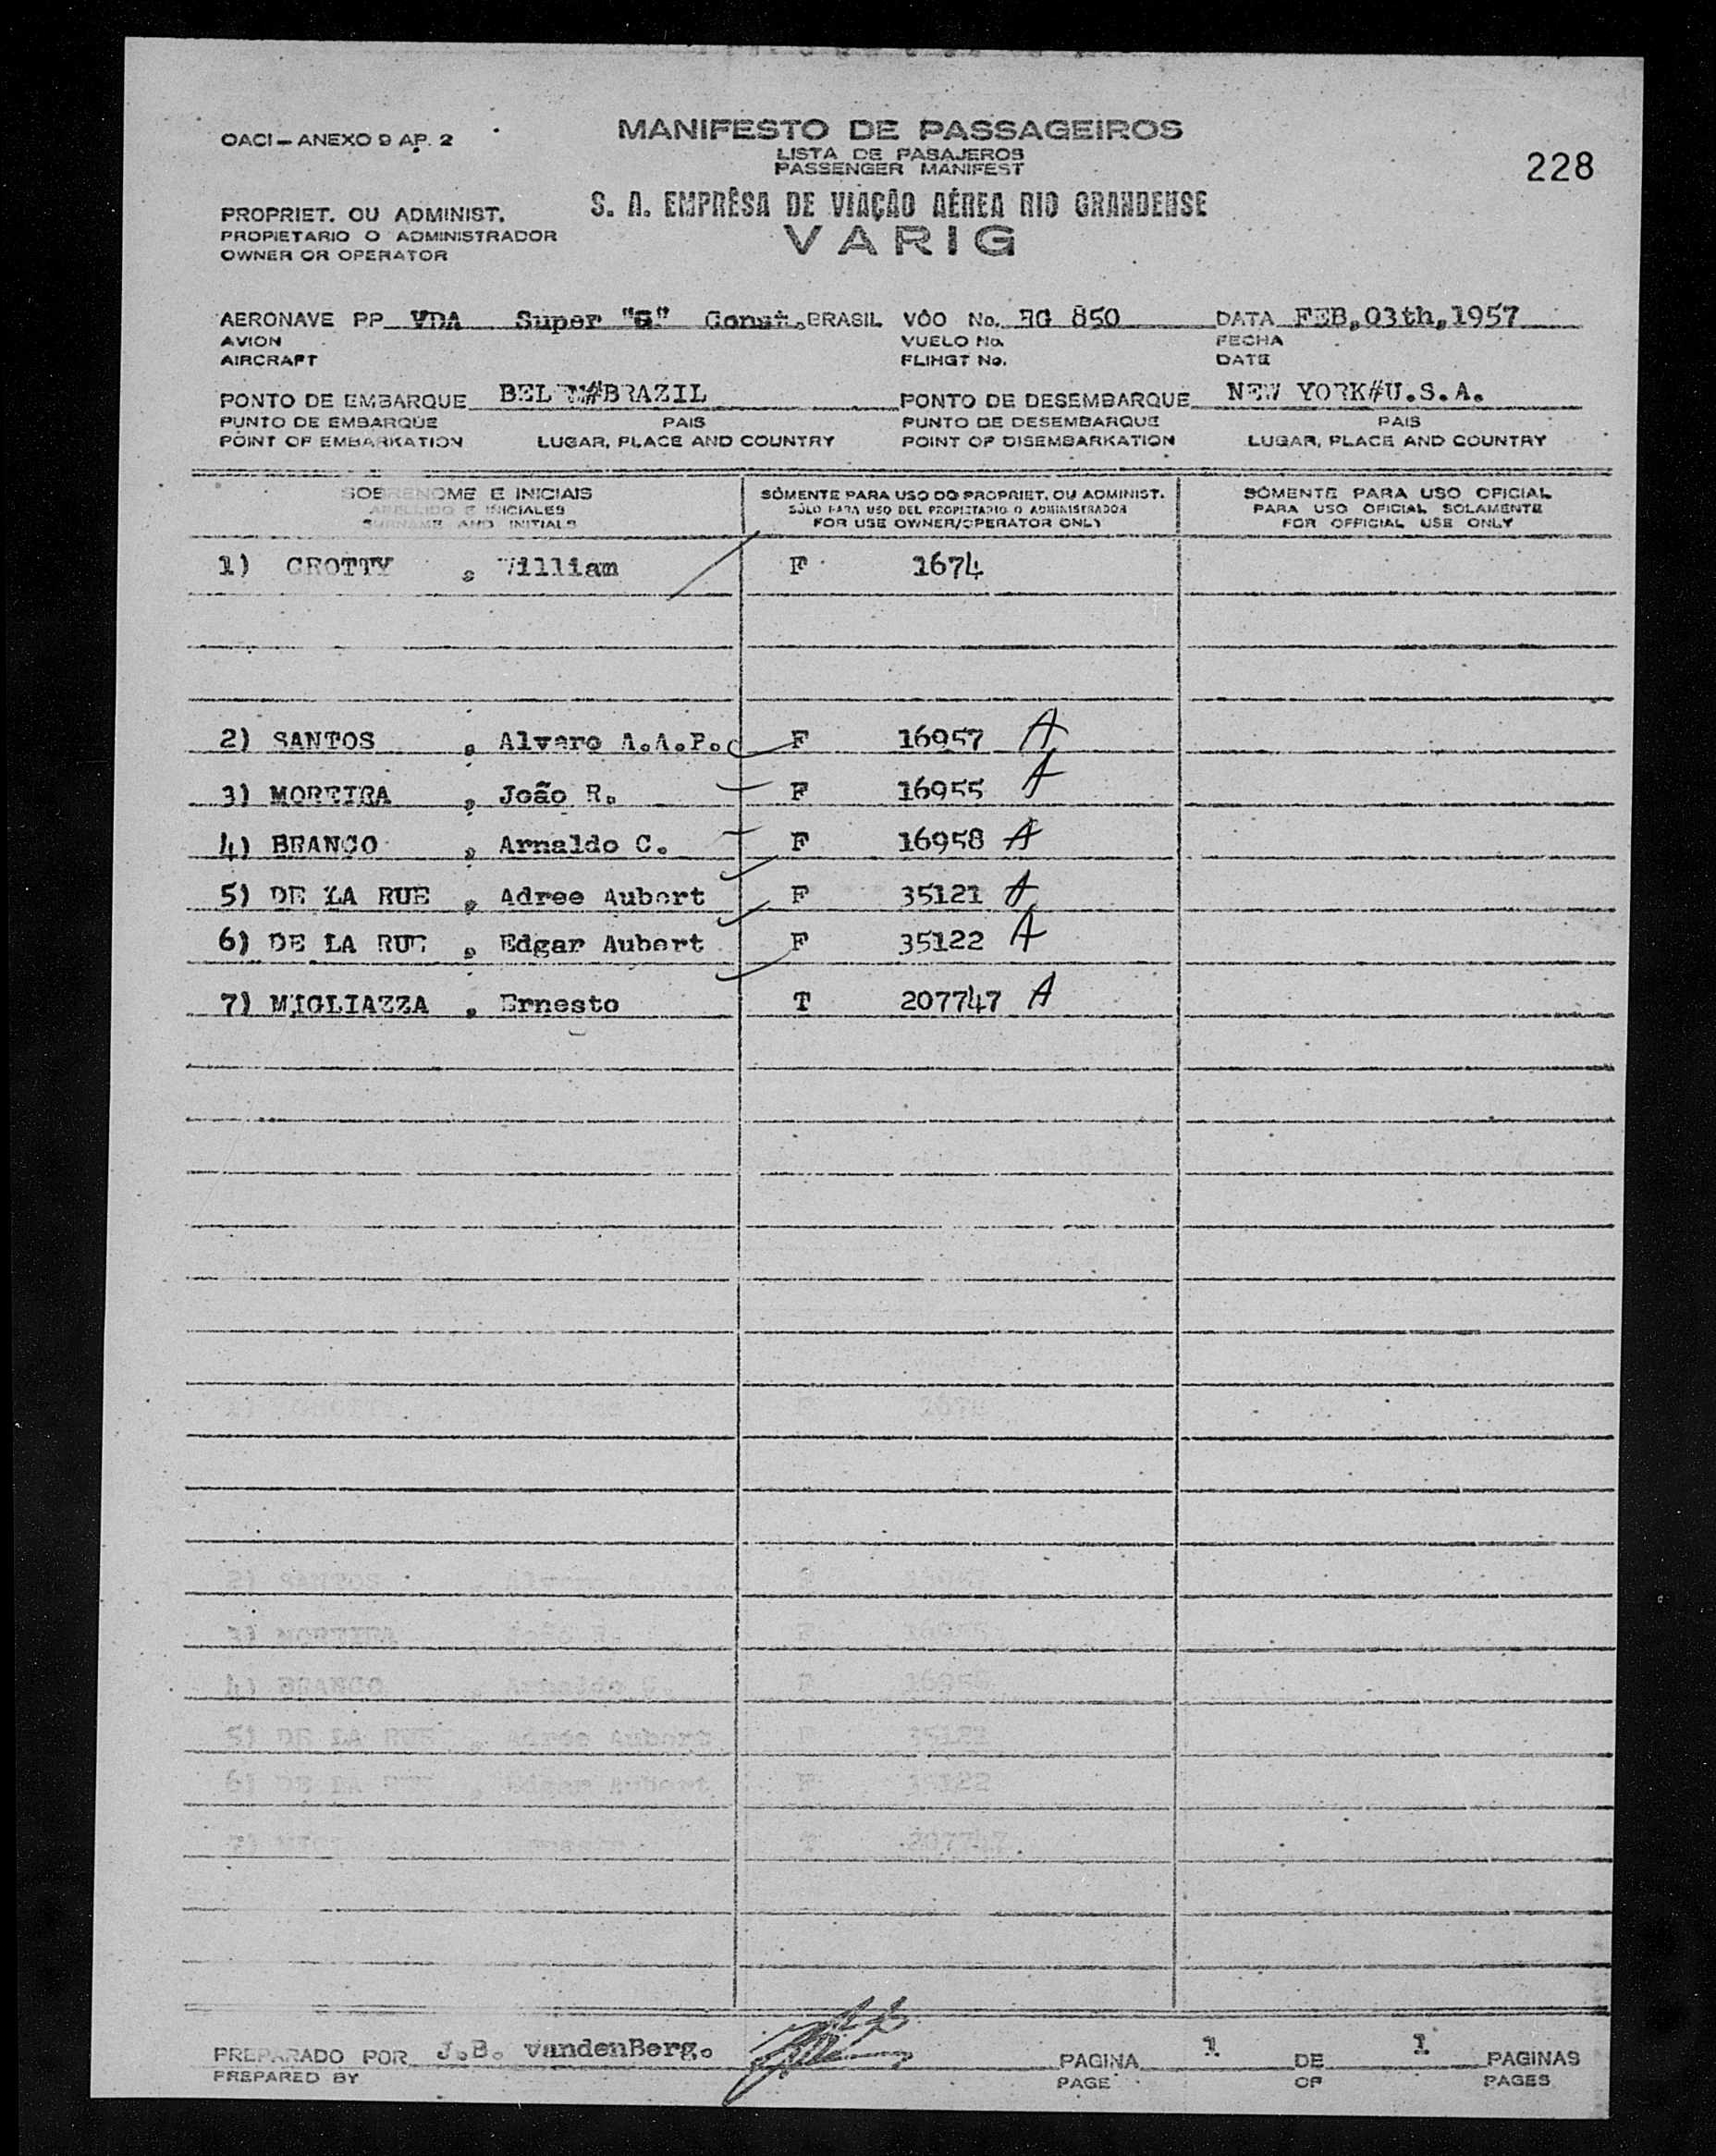 OACI – ANEXO 9 AP. 2
MANIFESTO DE PASSAGEIROS
LISTA DE PASAJEROS
PASSENGER MANIFEST
228
S. A. EMPRÊSA DE VIAÇÃO AÉREA RIO GRANDENSE
VARIG
PROPRIET. OU ADMINIST.
PROPIETARIO O ADMINISTRADOR
OWNER OR OPERATOR
AERONAVE PP VDA Super "G" Const. BRASIL VÔO No. RG 850 DATA FEB,03th,1957
AVION VUELO No. FECHA
AIRCRAFT FLIHGT No. DATE
PONTO DE EMBARQUE BELEM#BRAZIL PONTO DE DESEMBARQUE NEW YORK#U.S.A.
PUNTO DE EMBARQUE PAIS PUNTO DE DESEMBARQUE PAIS
POINT OF EMBARKATION LUGAR, PLACE AND COUNTRY POINT OF DISEMBARKATION LUGAR, PLACE AND COUNTRY
SOBRENOME E INICIAIS SÓMENTE PARA USO DO PROPRIET. OU ADMINIST. SÓMENTE PARA USO OFICIAL
APELLIDO E INICIALES SÓLO PARA USO DEL PROPIETARIO O ADMINISTRADOR PARA USO OFICIAL SOLAMENTE
SURNAME AND INITIALS FOR USE OWNER/OPERATOR ONLY FOR OFFICIAL USE ONLY
1) CROTTY , William F 1674
2) SANTOS , Alvaro A.A.P. F 16957 A
3) MOREIRA , João R. F 16955 A
4) BRANCO , Arnaldo C. F 16958 A
5) DE LA RUE , Adree Aubert F 35121 A
6) DE LA RUE , Edgar Aubert F 35122 A
7) MIGLIAZZA , Ernesto T 207747 A
PREPARADO POR J.B. vandenBerg. PAGINA 1 DE 1 PAGINAS
PREPARED BY PAGE OF PAGES